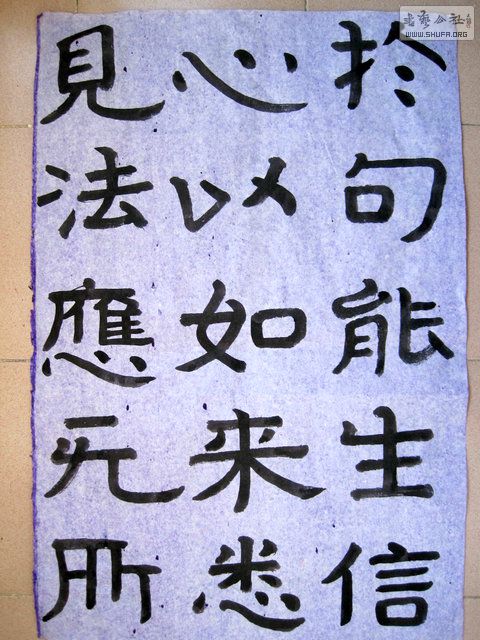 於句能生信
心以如来悉
見法應无所
書藝公社
WWW.SHUFA.ORG